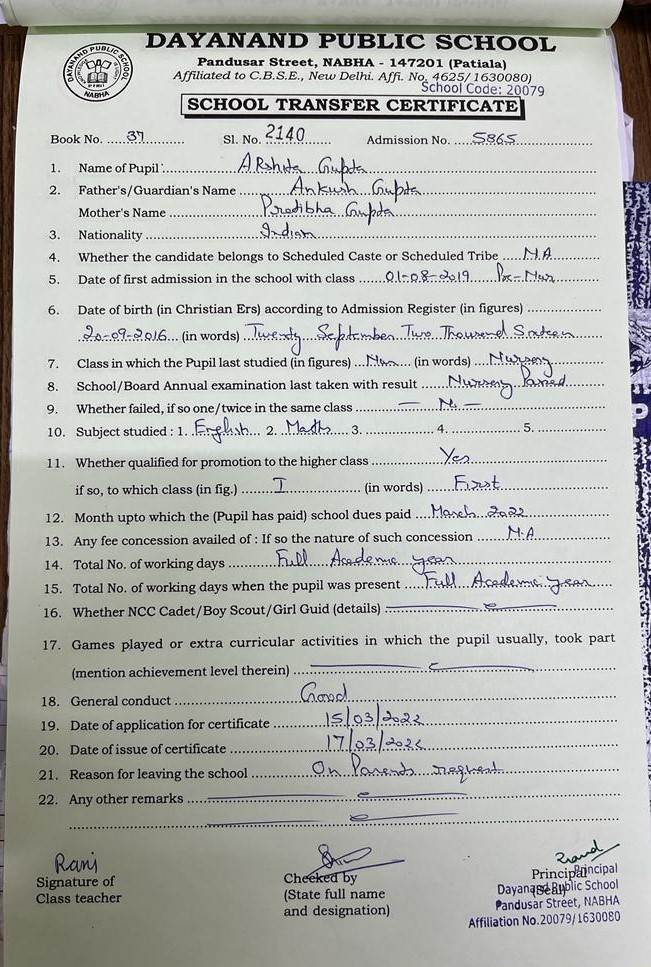 DAYANAND PUBLIC SCHOOL
Pandusar Street, NABHA - 147201 (Patiala)
Affiliated to C.B.S.E., New Delhi. Affi. No. 4625/1630080)
School Code: 20079
DAYANAND PUBLIC SCHOOL
NABHA
SCHOOL TRANSFER CERTIFICATE
Book No. 37 Sl. No. 2140 Admission No. 5865
1. Name of Pupil ARshita Gupta
2. Father's/Guardian's Name Ankush Gupta
Mother's Name Pratibha Gupta
3. Nationality Indian
4. Whether the candidate belongs to Scheduled Caste or Scheduled Tribe N.A
5. Date of first admission in the school with class 01-08-2019 Pre-Nur
6. Date of birth (in Christian Ers) according to Admission Register (in figures)
20-09-2016 (in words) Twenty September Two Thousand Sixteen
7. Class in which the Pupil last studied (in figures) Nur (in words) Nursery
8. School/Board Annual examination last taken with result Nursery Passed
9. Whether failed, if so one/twice in the same class — No —
10. Subject studied : 1. English 2. Maths 3. 4. 5.
11. Whether qualified for promotion to the higher class Yes
if so, to which class (in fig.) I (in words) First
12. Month upto which the (Pupil has paid) school dues paid March 2022
13. Any fee concession availed of : If so the nature of such concession N.A
14. Total No. of working days Full Academic year
15. Total No. of working days when the pupil was present Full Academic year
16. Whether NCC Cadet/Boy Scout/Girl Guid (details)
17. Games played or extra curricular activities in which the pupil usually, took part
(mention achievement level therein)
18. General conduct Good
19. Date of application for certificate 15/03/2022
20. Date of issue of certificate 17/03/2022
21. Reason for leaving the school On Parents request
22. Any other remarks
Rani
Signature of
Class teacher
Checked by
(State full name
and designation)
Principal
(Seal)
Principal
Dayanand Public School
Pandusar Street, NABHA
Affiliation No.20079/1630080